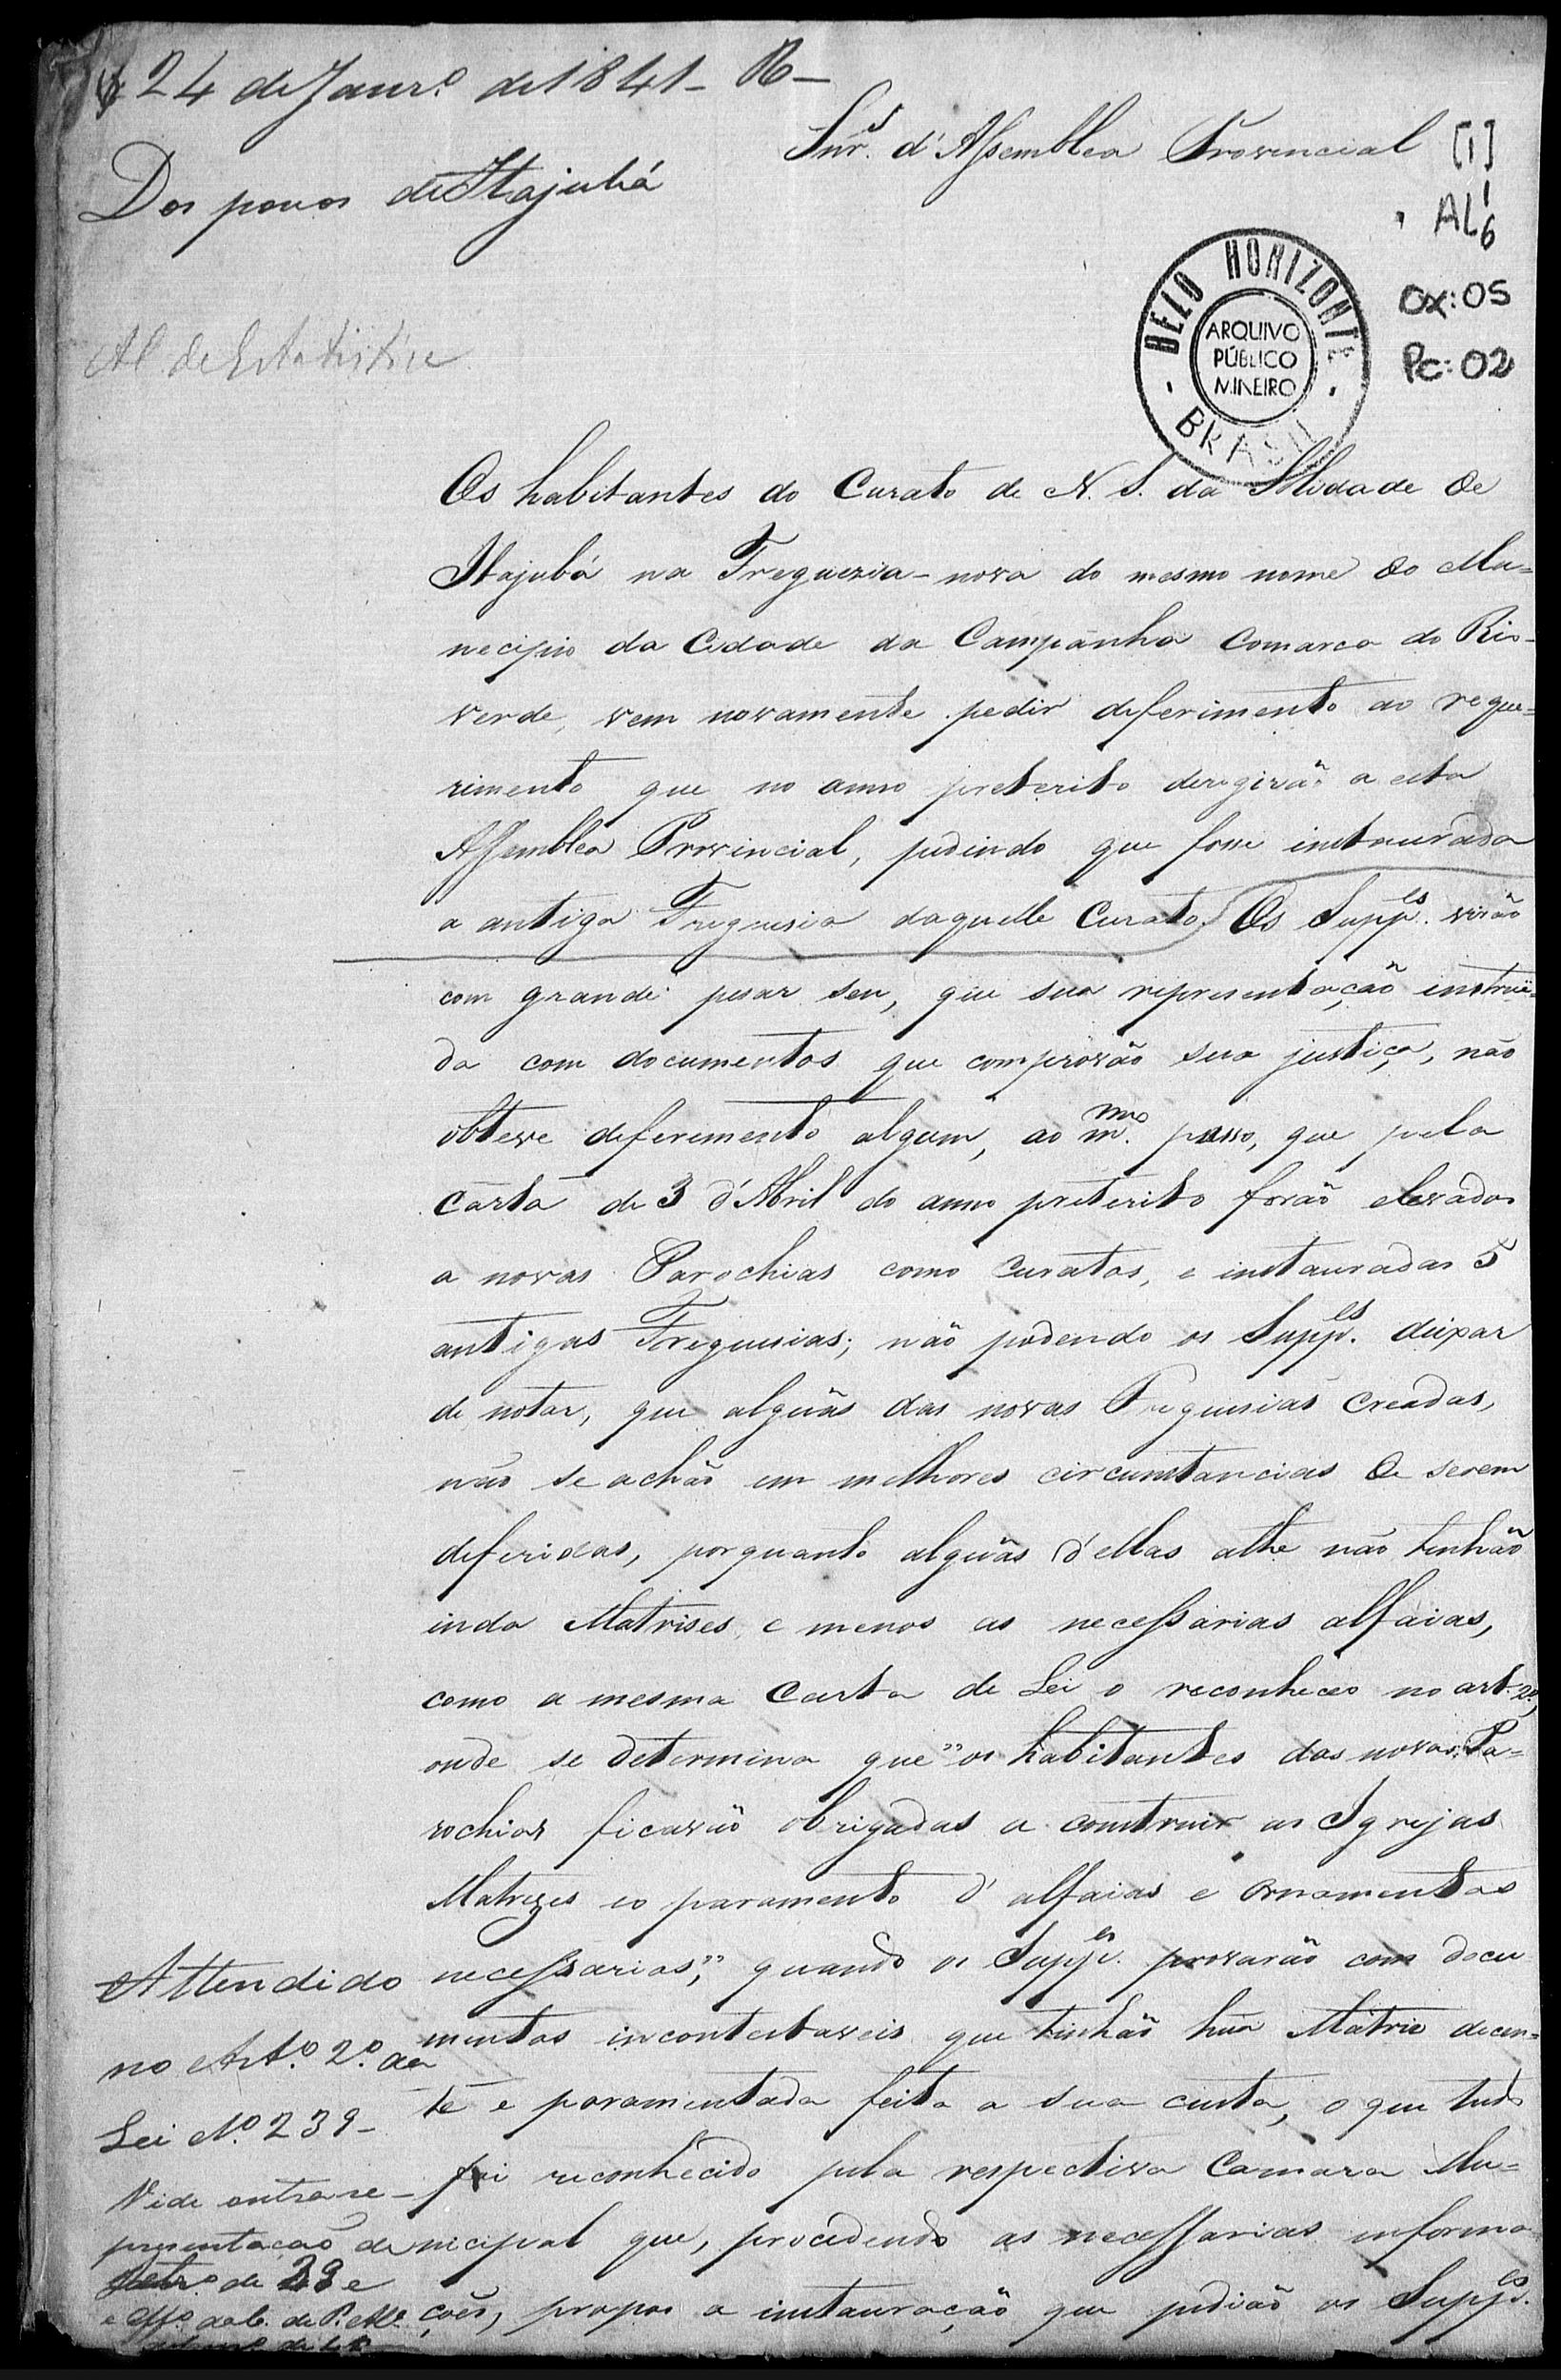 24 de Janr.o de 1841 - R -
Snr.es d'Assemblea Provincial
[1]
Dos povos de Itajubá
AL 1/6
BELO HORIZONTE
ARQUIVO
PÚBLICO
MINEIRO
BRASIL
Cx: 05
Pc: 02
Al. de Estatistica
Os habitantes do Curato de N. S. da Solidade de
Itajubá na Freguezia-nova do mesmo nome do Mu=
necipio da Cidade da Campanha Comarca do Rio-
verde, vem novamente pedir deferimento ao reque=
rimento que no anno preterito derigirão a esta
Assemblea Provincial, pedindo que fosse instaurada
a antiga Freguesia daquelle Curato. Os Supp.es virão
com grande pesar seu, que sua representação instrui=
da com documentos que comprovão sua justiça, não
obteve deferemento algum, ao m.mo passo, que pela
Carta de 3 d'Abril do anno preterito forão elevados
a novas Parochias como Curatos, e instauradas 5
antigas Freguesias; não podendo os Supp.es deixar
de notar, que algũas das novas Freguesias creadas,
não se achão em melhores circumstancias de serem
deferidas, porquanto algũas d'ellas athe não tinhão
inda Matrises, e menos as necessarias alfaias,
como a mesma Carta de Lei o reconheceo no art. 2.o,
onde se determina que "os habitantes das novas Pa=
rochias ficarão obrigadas a construir as Igrejas
Matrizes eo paramento d'alfaias e ornamentos
necessarios," quando os Supp.es provarão com docu
mentos incontestaveis que tinhão hũa Matriz decen=
te e paramentada feita a sua custa, o que tudo
foi reconhecido pela respectiva Camara Mu=
nicipal que, procedendo as necessarias informa
ções, propos a instauração que pedião os Supp.es
Attendido
no Art.o 2.o da
Lei N.o 239 -
Vide outra re-
presentação de
de 39 e